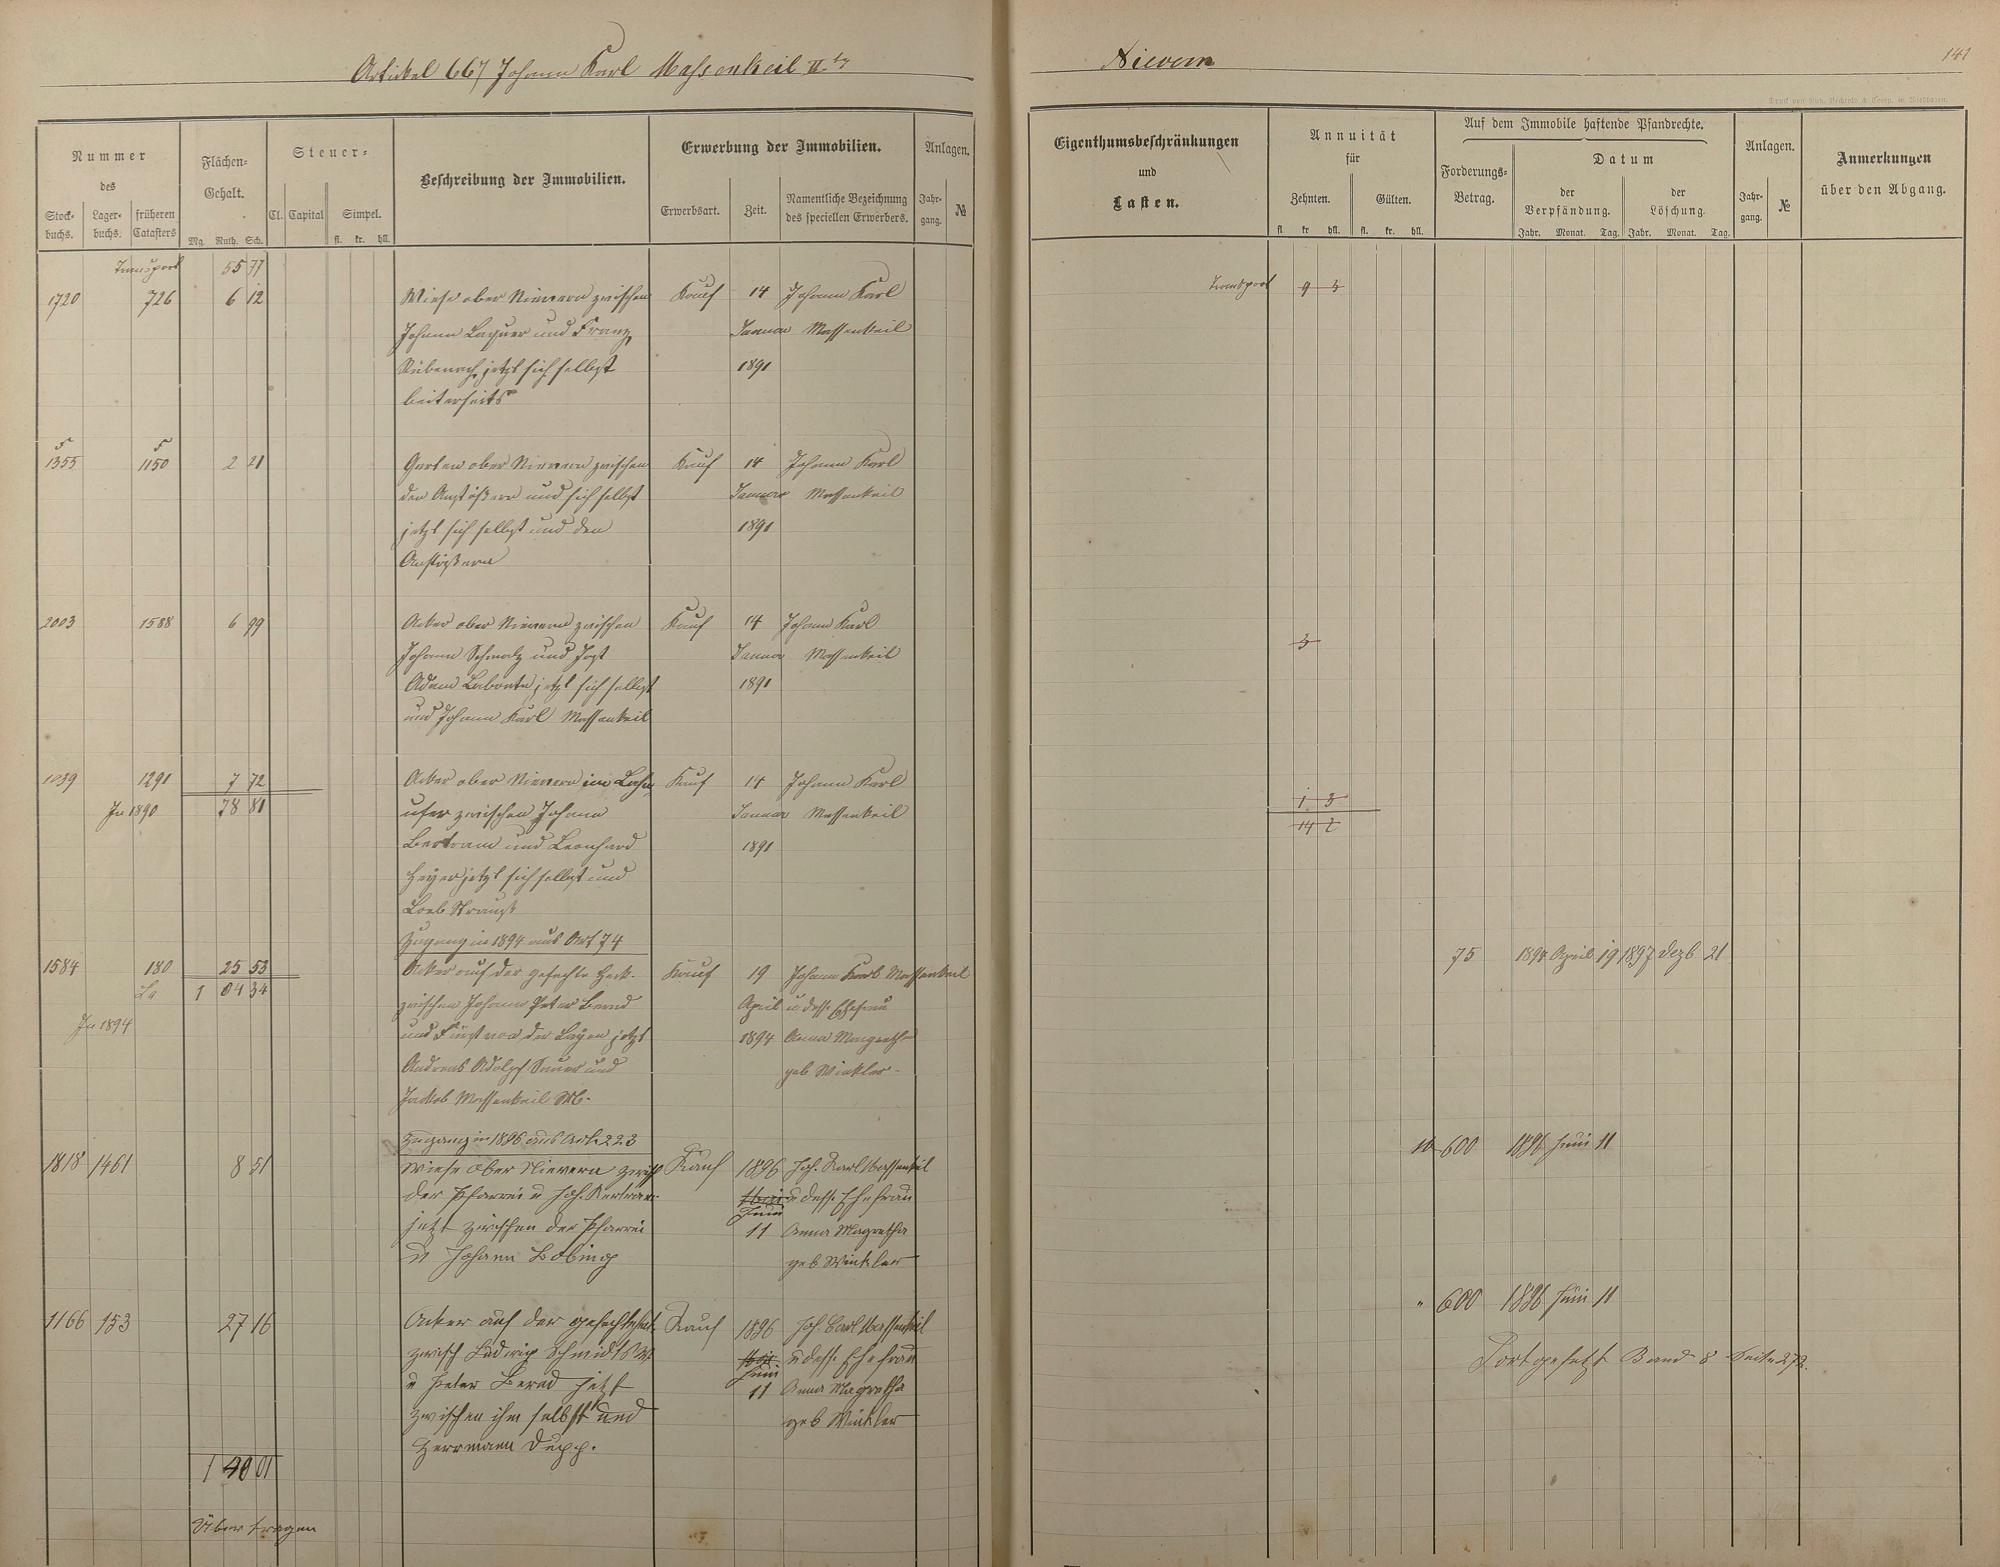 Artikel 667 Johann Karl Massenkeil II.
Nievern
141
Nummer
des
Stock-
buchs.
Lager-
buchs.
früheren
Catasters
Flächen-
Gehalt.
Mg. Ruth. Sch.
Steuer-
Cl. Capital Simpel.
fl. kr. hll.
Beschreibung der Immobilien.
Erwerbung der Immobilien.
Erwerbsart. Zeit.
Namentliche Bezeichnung
des speciellen Erwerbers.
Anlagen.
Jahr-
gang.
№
Eigenthumsbeschränkungen
und
Lasten.
Annuität
für
Zehnten. Gülten.
fl kr hll. fl. kr. hll.
Auf dem Immobile haftende Pfandrechte.
Forderungs-
Betrag.
Datum
der
Verpfändung.
der
Löschung.
Jahr. Monat. Tag. Jahr. Monat. Tag.
Anlagen.
Jahr-
gang.
№
Anmerkungen
über den Abgang.
Transport 55 77
Transport 9 3
1720 726 6 12 Wiese ober Nievern zwischen Kauf 14 Johann Karl
Johann Laquer und Franz Januar Massenkeil
Rübenach jetzt sich selbst 1891
beiterseits
1355 1150 2 21 Garten ober Nievern zwischen Kauf 14 Johann Karl
den Anstößern und sich selbst Januar Massenkeil
jetzt sich selbst und den 1891
Anstößern
2003 1588 6 99 Acker ober Nievern zwischen Kauf 14 Johann Karl
3
Johann Schmalz und Jost Januar Massenkeil
Adam Labonte jetzt sich selbst 1891
und Johann Karl Massenkeil
1039 1291 7 72 Acker ober Nievern im Lahn- Kauf 14 Johann Karl
1 3
In 1890 78 81 ufer zwischen Johann Januar Massenkeil
14 2
Bertram und Leonhard 1891
Heyer jetzt sich selbst und
Loeb Strauß
Zugang in 1894 aus Art 74
75 1894 April 19 1897 Dezb 21
1584 180 25 53 Acker auf der gesechte Heck- Kauf 19 Johann Karl Massenkeil
1 04 34 zwischen Johann Peter Bernd April u dess. Ehefrau
In 1894 und Fürst von der Layen jetzt 1894 Anna Margretha
Andreas Adolph Sauer und geb Winkler
Jackob Massenkeil
Zugang in 1896 aus Art. 223
10 600 1896 Juni 11
1818 1461 8 51 Wiese ober Nievern zwisch Kauf 1896 Joh. Karl Massenkeil
der Pfarrei u Joh. Bertram u dess. Ehefrau
Juni
jetzt zwischen der Pfarrei 11 Anna Magretha
u Johann Bobing geb Winkler
" 600 1896 Juni 11
1166 153 27 16 Acker auf der gesechteheck. Kauf 1896 Joh. Carl Massenkeil
zwisch Ludwig Schmidts W. u dess. Ehefrau
Juni
u Peter Bernd jetzt 11 Anna Magretha
zwischen ihm selbst und geb Winkler
Herrmann Dupp.
Fortgesetzt Band 8 Seite 272.
1 40 01
Übertragen